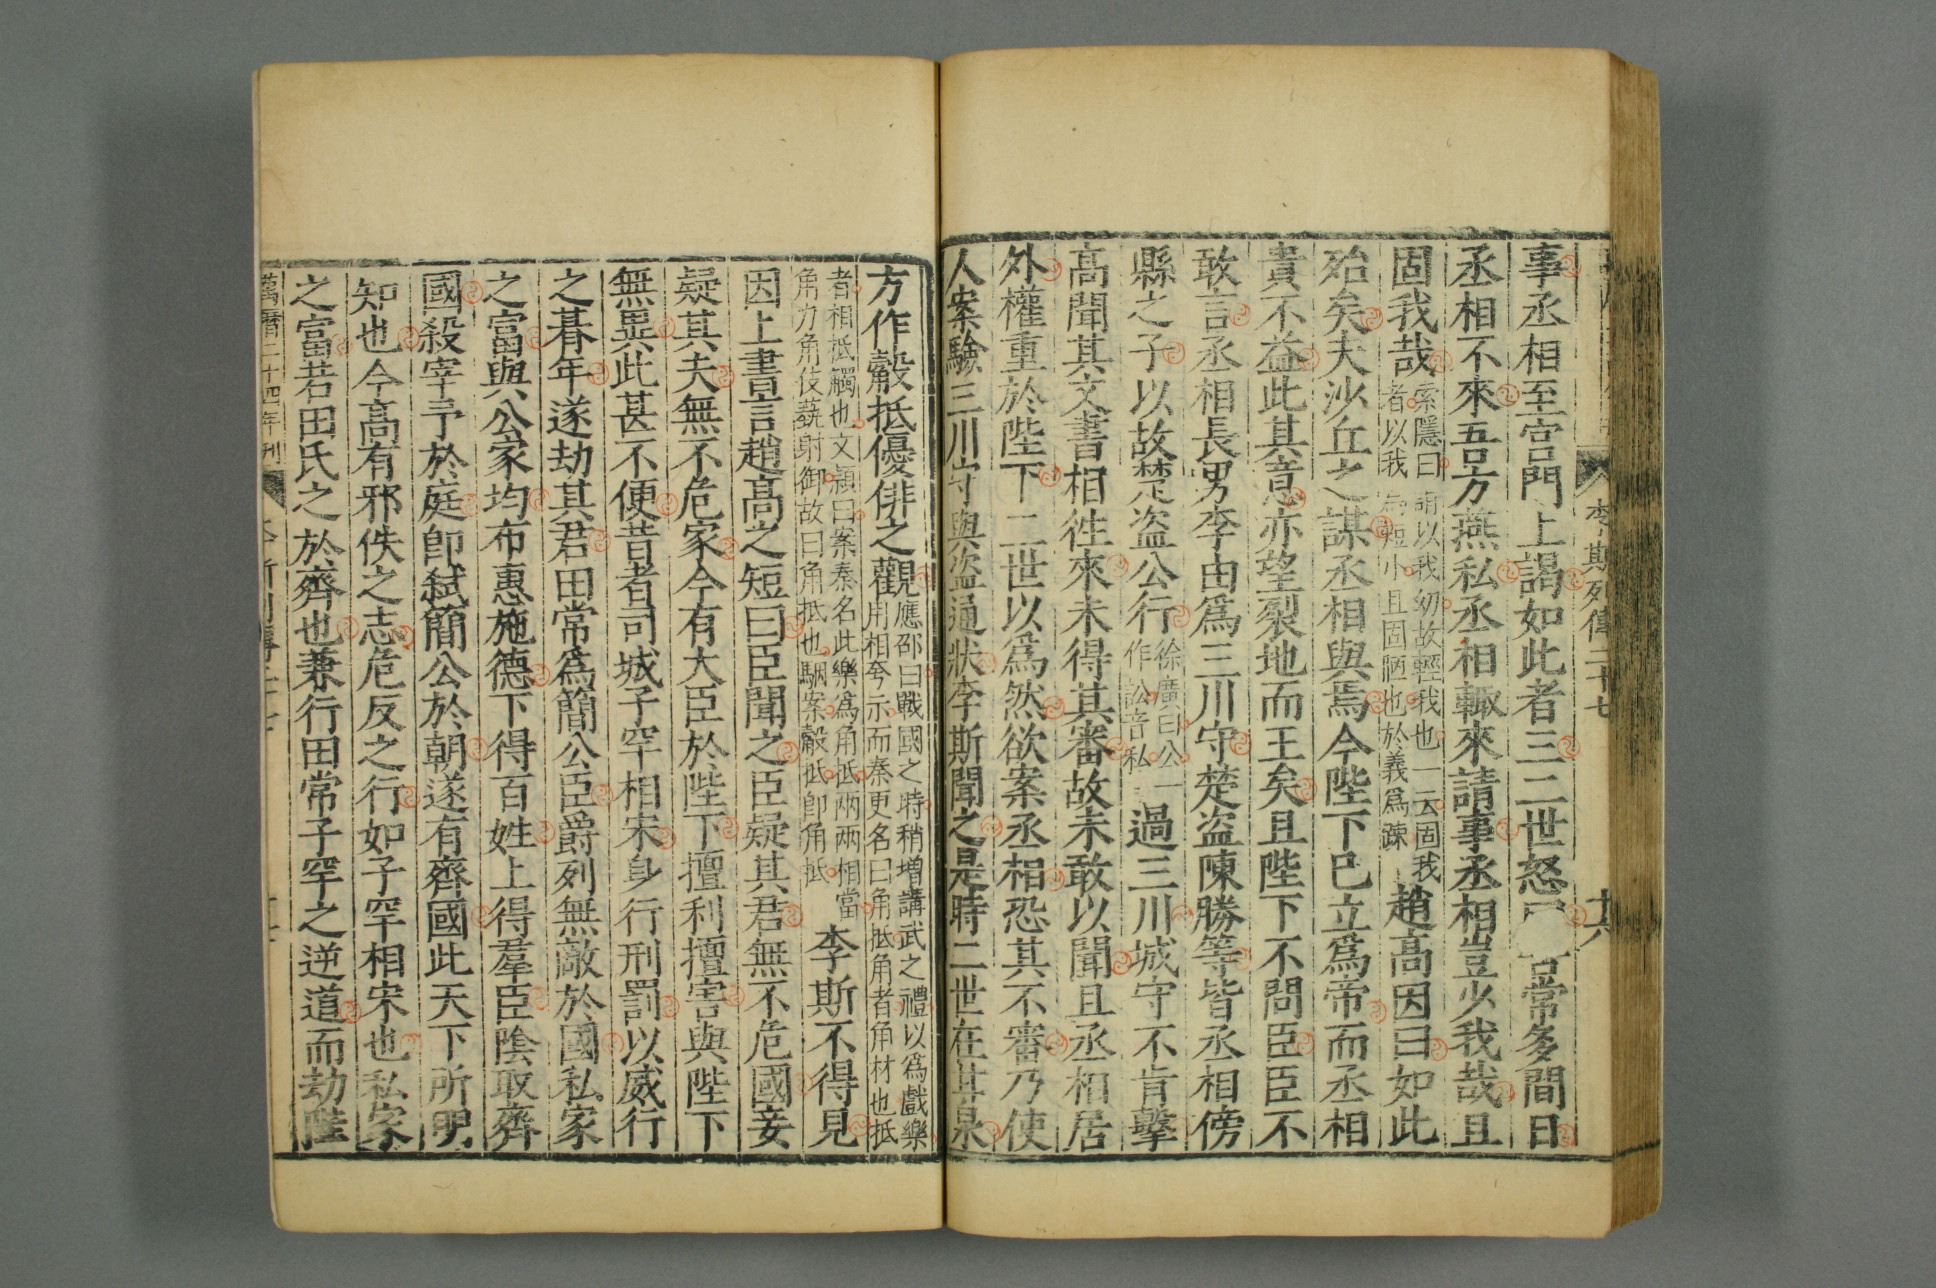 李斯列傳二十七
十六
事丞相至宮門上謁如此者三二世怒曰吾常多間日
丞相不來吾方燕私丞相輒來請事丞相豈少我哉且
固我哉
索隱曰謂以我幼故輕我也一云固我
者以我為短小且固陋也於義爲疎
趙高因曰如此
殆矣夫沙丘之謀丞相與焉今陛下已立爲帝而丞相
貴不益此其意亦望裂地而王矣且陛下不問臣臣不
敢言丞相長男李由爲三川守楚盜陳勝等皆丞相傍
縣之子以故楚盜公行
徐廣曰公一
作訟音私
過三川城守不肯擊
高聞其文書相徃來未得其審故未敢以聞且丞相居
外權重於陛下二世以爲然欲案丞相恐其不審乃使
人案驗三川守與盜通狀李斯聞之是時二世在甘泉
方作觳抵優俳之觀
應邵曰戰國之時稍增講武之禮以爲戲樂
用相夸示而秦更名曰角抵角者角材也抵
者相抵觸也文穎曰案秦名此樂爲角抵兩兩相當
角力角伎藝射御故曰角抵也駰案觳抵卽角抵
李斯不得見
因上書言趙高之短曰臣聞之臣疑其君無不危國妾
疑其夫無不危家今有大臣於陛下擅利擅害與陛下
無異此甚不便昔者司城子罕相宋身行刑罰以威行
之朞年遂劫其君田常爲簡公臣爵列無敵於國私家
之富與公家均布惠施德下得百姓上得羣臣陰取齊
國殺宰予於庭卽弑簡公於朝遂有齊國此天下所明
知也今高有邪佚之志危反之行如子罕相宋也私家
之富若田氏之於齊也兼行田常子罕之逆道而劫陛
萬曆二十四年刊